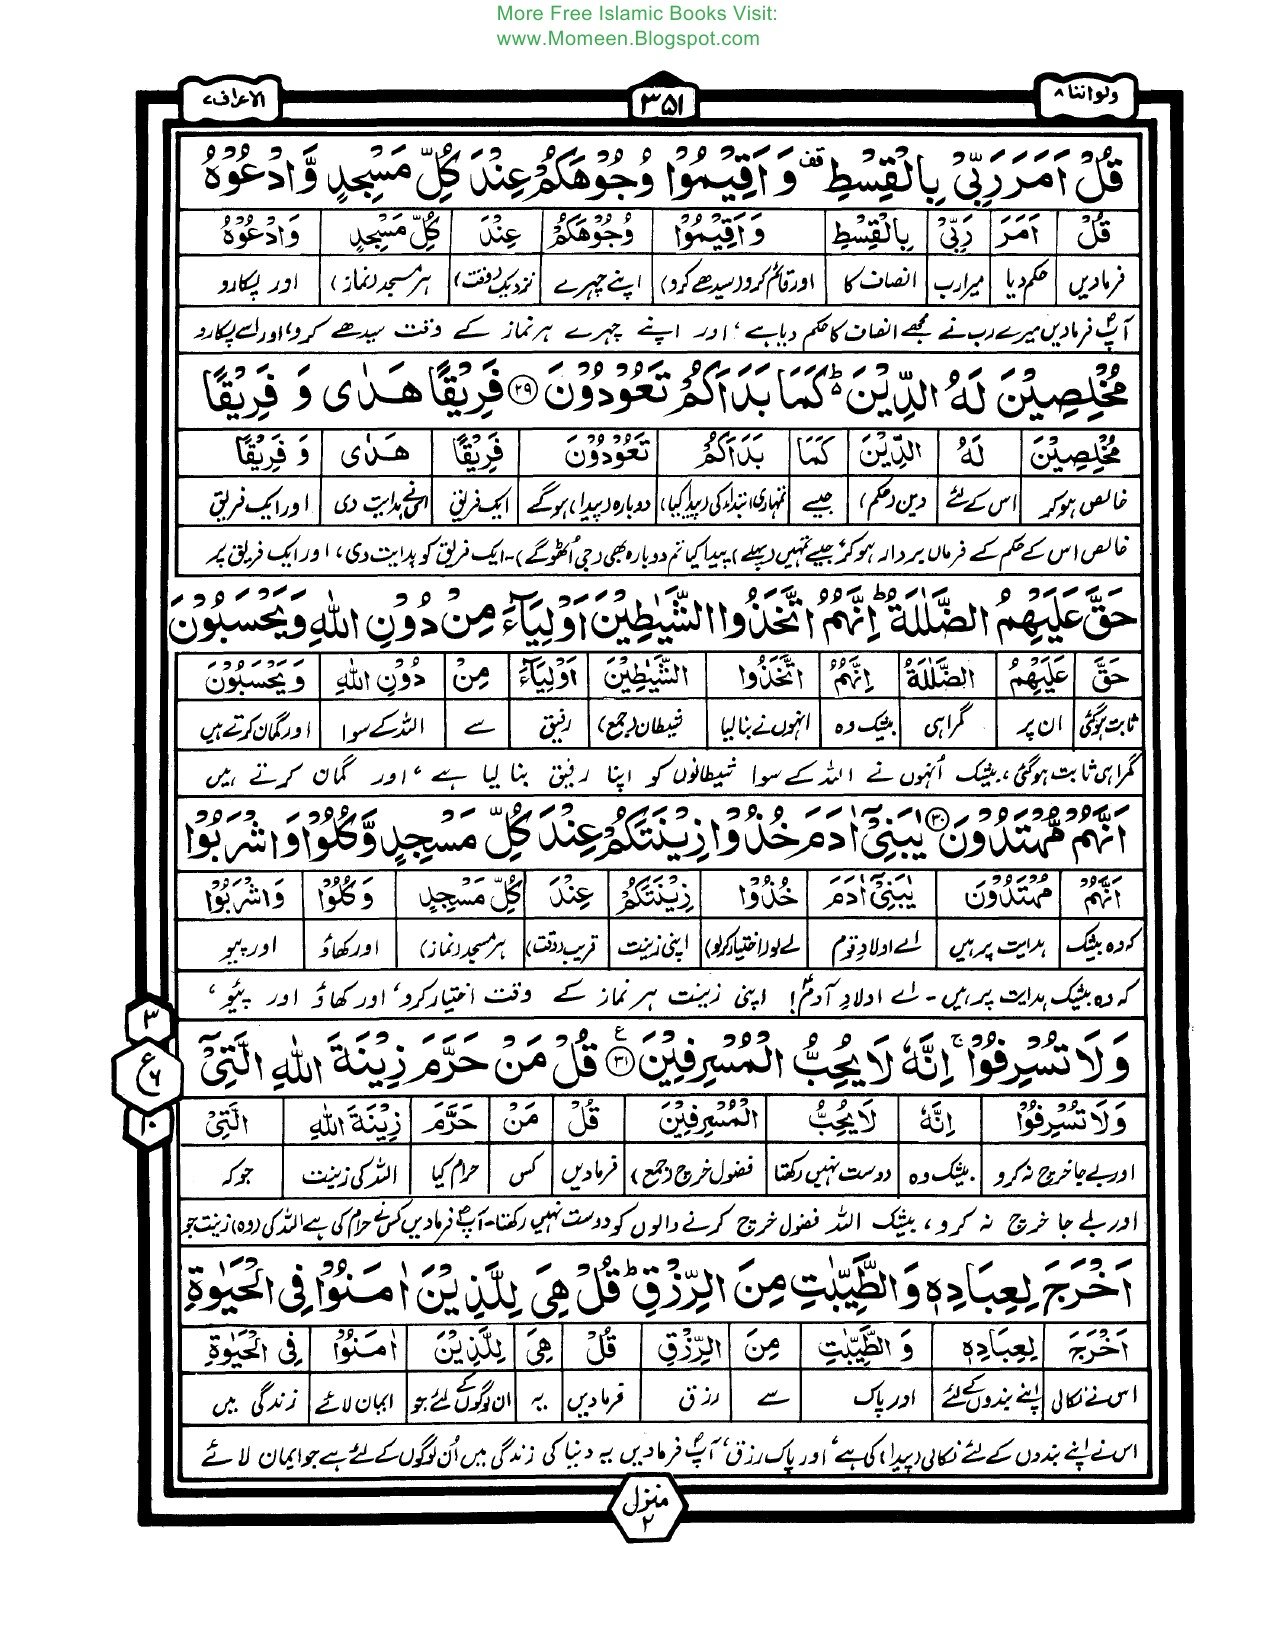 More Free Islamic Books Visit:
www.Momeen.Blogspot.com
ولواننا ۸
۳۵۱
الاعراف ۷
قُلْ اَمَرَ رَبِّیْ بِالْقِسْطِ قف وَ اَقِیْمُوْا وُجُوْهَكُمْ عِنْدَ كُلِّ مَسْجِدٍ وَّ ادْعُوْهُ
قُلْ اَمَرَ رَبِّیْ بِالْقِسْطِ وَ اَقِیْمُوْا وُجُوْهَكُمْ عِنْدَ كُلِّ مَسْجِدٍ وَ ادْعُوْهُ
فرمادیں حکم دیا میرا رب انصاف کا اور قائم کرو (سیدھے کرو) اپنے چہرے نزدیک (وقت) ہر مسجد (نماز) اور پکارو
آپؐ فرمادیں میرے رب نے مجھے انصاف کا حکم دیا ہے، اور اپنے چہرے ہر نماز کے وقت سیدھے کرو، اور اسے پکارو
مُخْلِصِیْنَ لَهُ الدِّیْنَ ؕ كَمَا بَدَاَكُمْ تَعُوْدُوْنَ ۲۹ فَرِیْقًا هَدٰی وَ فَرِیْقًا
مُخْلِصِیْنَ لَهُ الدِّیْنَ كَمَا بَدَاَكُمْ تَعُوْدُوْنَ فَرِیْقًا هَدٰی وَ فَرِیْقًا
خالص ہو کر اس کے لئے دین (حکم) جیسے تمہاری ابتداء کی (پیدا کیا) دوبارہ (پیدا) ہوگے ایک فریق اس نے ہدایت دی اور ایک فریق
خالص اس کے حکم کے فرماں بردار ہو کر، جیسے تمہیں (پہلے) پیدا کیا تم دوبارہ بھی (جی اٹھوگے)۔ ایک فریق کو ہدایت دی، اور ایک فریق پر
حَقَّ عَلَیْهِمُ الضَّلٰلَةُ ؕ اِنَّهُمُ اتَّخَذُوا الشَّیٰطِیْنَ اَوْلِیَآءَ مِنْ دُوْنِ اللّٰهِ وَ یَحْسَبُوْنَ
حَقَّ عَلَیْهِمُ الضَّلٰلَةُ اِنَّهُمُ اتَّخَذُوا الشَّیٰطِیْنَ اَوْلِیَآءَ مِنْ دُوْنِ اللّٰهِ وَ یَحْسَبُوْنَ
ثابت ہوگئی ان پر گمراہی بیشک وہ انہوں نے بنا لیا شیطان (جمع) رفیق سے اللہ کے سوا اور گمان کرتے ہیں
گمراہی ثابت ہوگئی، بیشک اُنہوں نے اللہ کے سوا شیطانوں کو اپنا رفیق بنا لیا ہے، اور گمان کرتے ہیں
اَنَّهُمْ مُّهْتَدُوْنَ ۳۰ یٰبَنِیْۤ اٰدَمَ خُذُوْا زِیْنَتَكُمْ عِنْدَ كُلِّ مَسْجِدٍ وَّ كُلُوْا وَ اشْرَبُوْا
اَنَّهُمْ مُهْتَدُوْنَ یٰبَنِیْۤ اٰدَمَ خُذُوْا زِیْنَتَكُمْ عِنْدَ كُلِّ مَسْجِدٍ وَ كُلُوْا وَ اشْرَبُوْا
کہ وہ بیشک ہدایت پر ہیں اے اولادِ آدم لے لو (اختیار کرلو) اپنی زینت قریب (وقت) ہر مسجد (نماز) اور کھاؤ اور پیو
کہ وہ بیشک ہدایت پر ہیں۔ اے اولادِ آدمؑ! اپنی زینت ہر نماز کے وقت اختیار کرو، اور کھاؤ اور پیئو،
وَ لَا تُسْرِفُوْا ۚ اِنَّهٗ لَا یُحِبُّ الْمُسْرِفِیْنَ ۳۱ ع قُلْ مَنْ حَرَّمَ زِیْنَةَ اللّٰهِ الَّتِیْۤ
۳
ع ۶
۱۰
وَ لَا تُسْرِفُوْا اِنَّهٗ لَا یُحِبُّ الْمُسْرِفِیْنَ قُلْ مَنْ حَرَّمَ زِیْنَةَ اللّٰهِ الَّتِیْ
اور بے جا خرچ نہ کرو بیشک وہ دوست نہیں رکھتا فضول خرچ (جمع) فرمادیں کس حرام کیا اللہ کی زینت جو کہ
اور بے جا خرچ نہ کرو، بیشک اللہ فضول خرچ کرنے والوں کو دوست نہیں رکھتا۔ آپؐ فرمادیں کس نے حرام کی ہے اللہ کی (وہ) زینت جو
اَخْرَجَ لِعِبَادِهٖ وَ الطَّیِّبٰتِ مِنَ الرِّزْقِ ؕ قُلْ هِیَ لِلَّذِیْنَ اٰمَنُوْا فِی الْحَیٰوةِ
اَخْرَجَ لِعِبَادِهٖ وَ الطَّیِّبٰتِ مِنَ الرِّزْقِ قُلْ هِیَ لِلَّذِیْنَ اٰمَنُوْا فِی الْحَیٰوةِ
اس نے نکالی اپنے بندوں کے لئے اور پاک سے رزق فرمادیں یہ ان لوگوں کے لئے جو ایمان لائے زندگی میں
اس نے اپنے بندوں کے لئے نکالی (پیدا) کی ہے، اور پاک رزق، آپؐ فرمادیں یہ دنیا کی زندگی میں اُن لوگوں کے لئے ہے جو ایمان لائے
منزل ۲